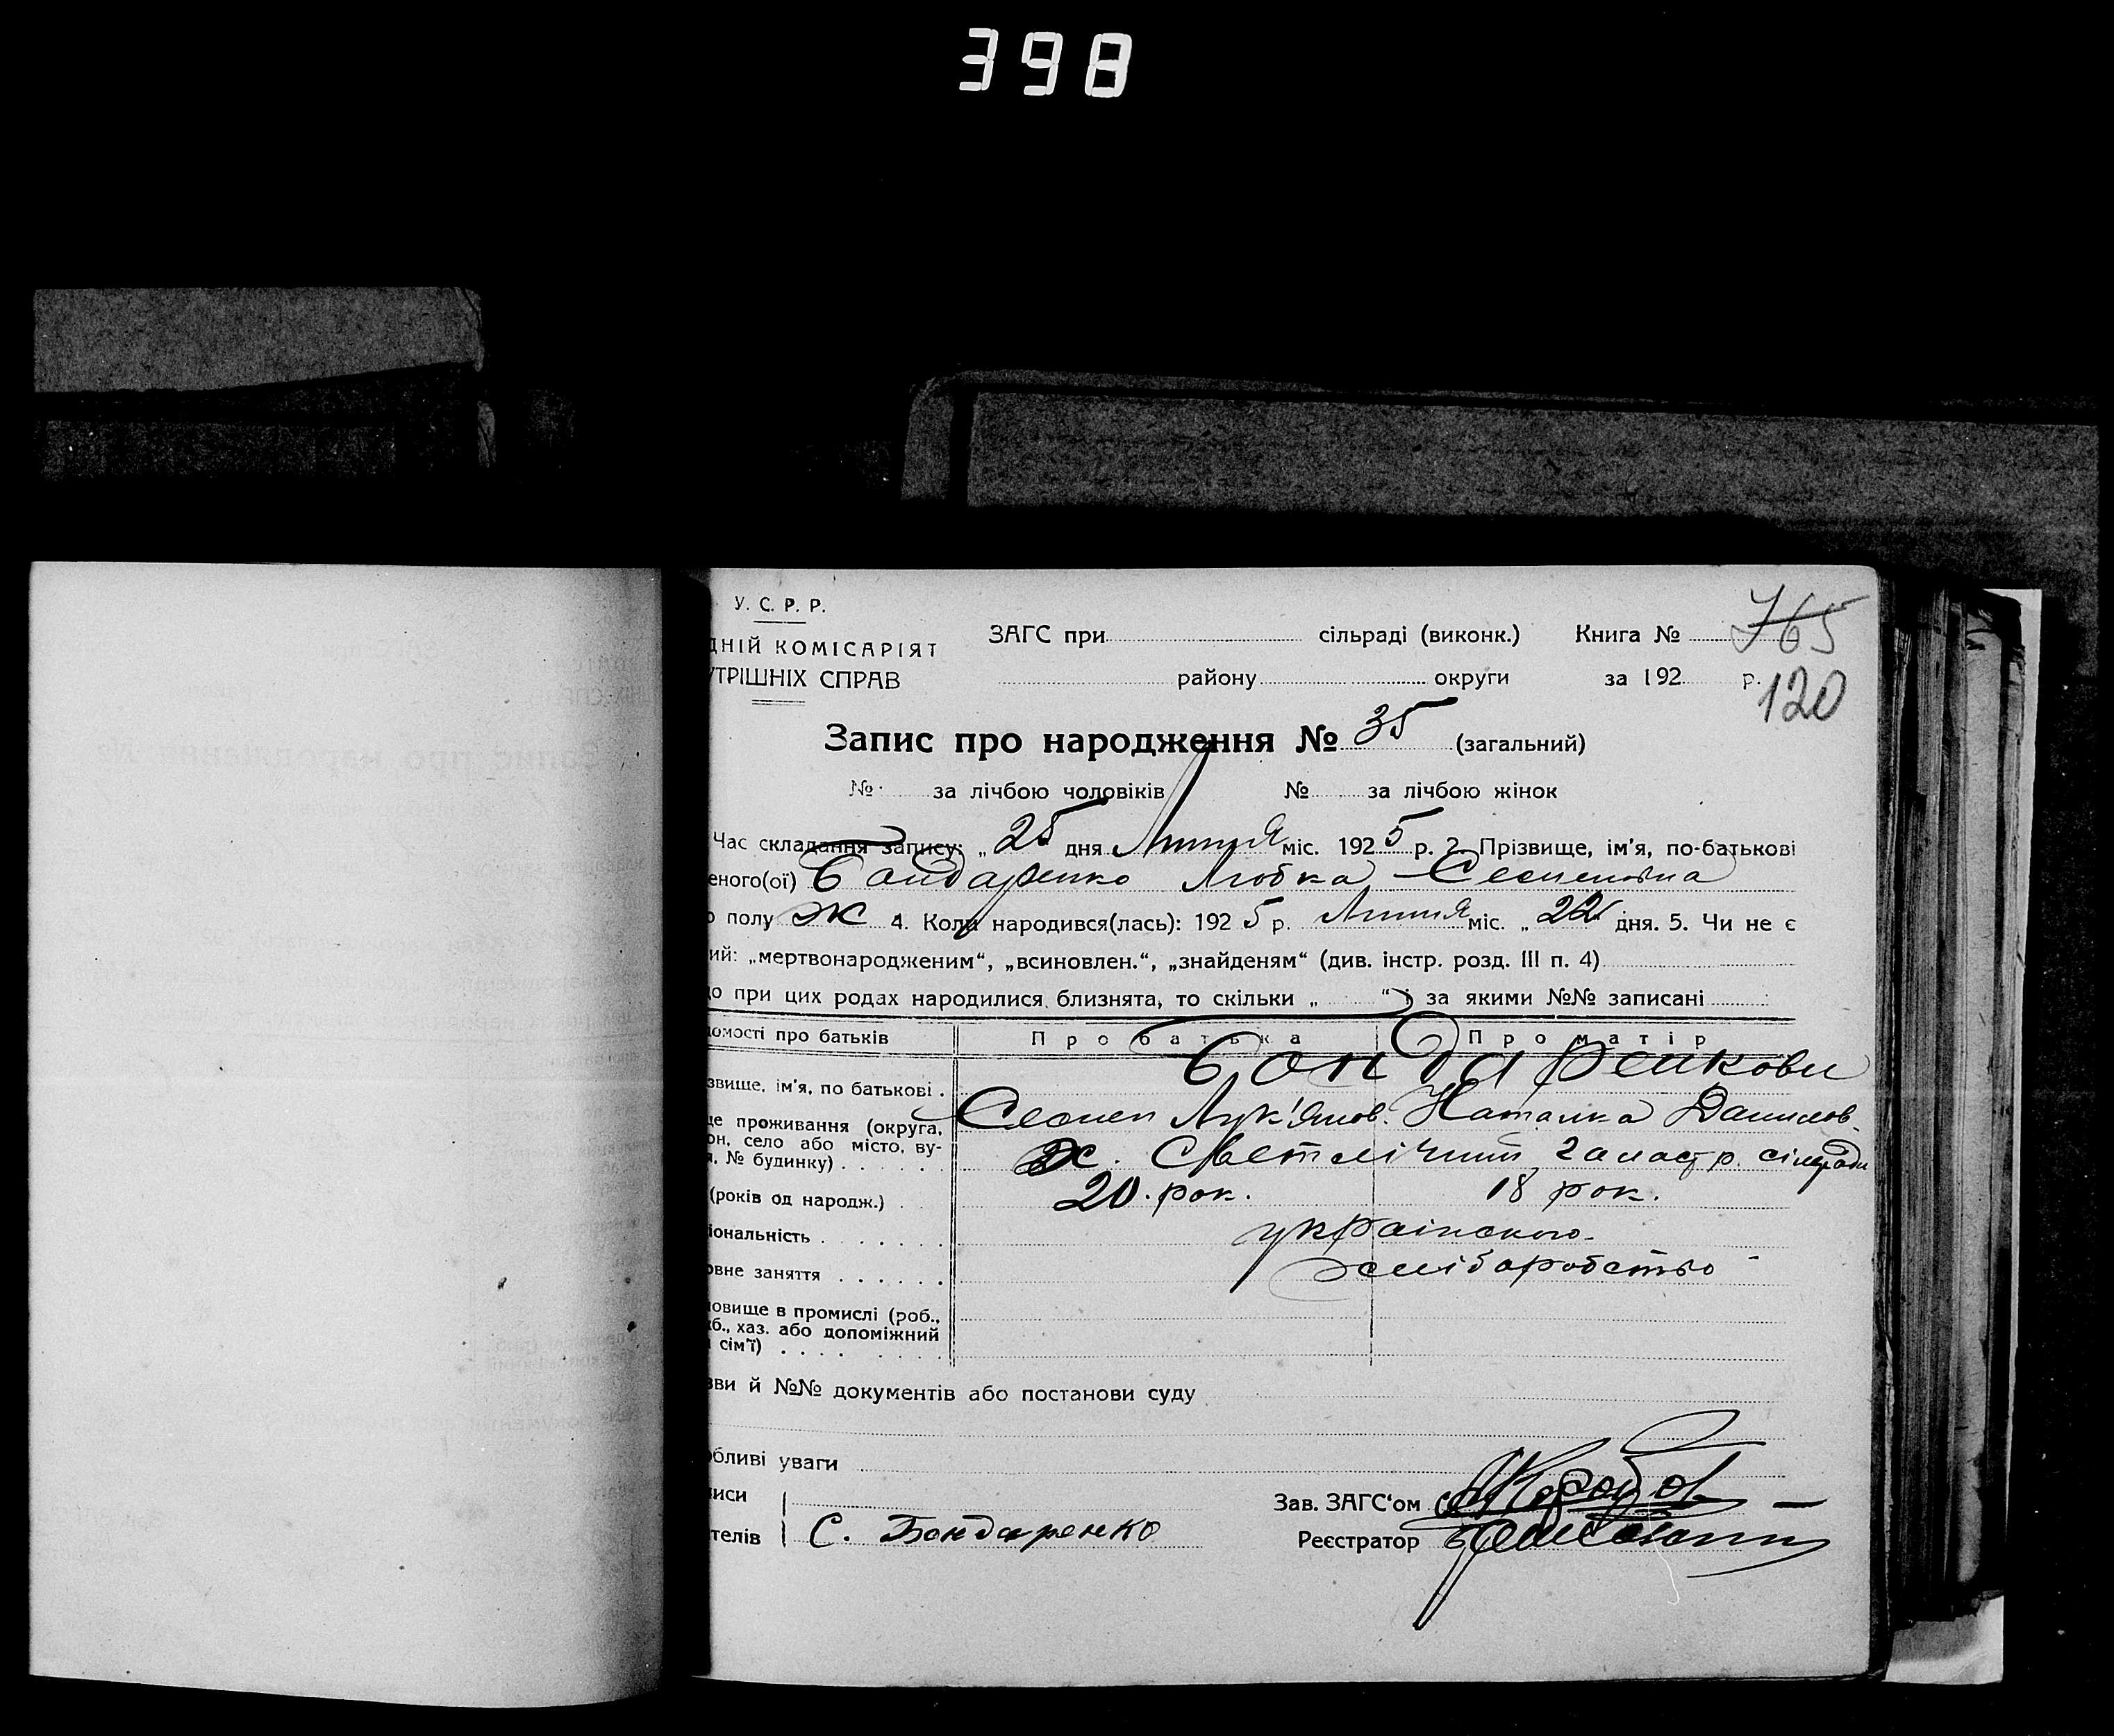 398
У. С. Р. Р.
ДНІЙ КОМІСАРІЯТ
УТРІШНІХ СПРАВ
ЗАГС при сільраді (виконк.) Книга № 765
району округи за 192 р.
120
Запис про народження № 35 (загальний)
№ за лічбою чоловіків № за лічбою жінок
Час складання запису: „25 дня Липня міс. 1925 р. 2. Прізвище, ім'я, по-батькові
еного(ої) Бондаренко Любка Семенівна
о полу ж 4. Коли народився(лась): 1925 р. Липня міс. „22 дня. 5. Чи не є
ий: „мертвонародженим“, „всиновлен.“, „знайденям“ (див. інстр. розд. III п. 4)
о при цих родах народилися близнята, то скільки „ “ і за якими №№ записані
домості про батьків Про батька Про матір
Бондаренкови
звище, ім'я, по батькові . Семен Лук'янов. Наталка Данилов.
це проживання (округа,
он, село або місто, ву-
я, № будинку) . . . . . х. Светлічний сільради
(років од народж.) . . 20. рок. 18 рок.
іональність . . . . . . . українского.
овне заняття . . . . . . хліборобство -
новище в промислі (роб.,
жб., хаз. або допоміжний
і сім'ї) . . . . . . . .
зви й №№ документів або постанови суду
обливі уваги
писи
телів С. Бондаренко
Зав. ЗАГС'ом
Реєстратор